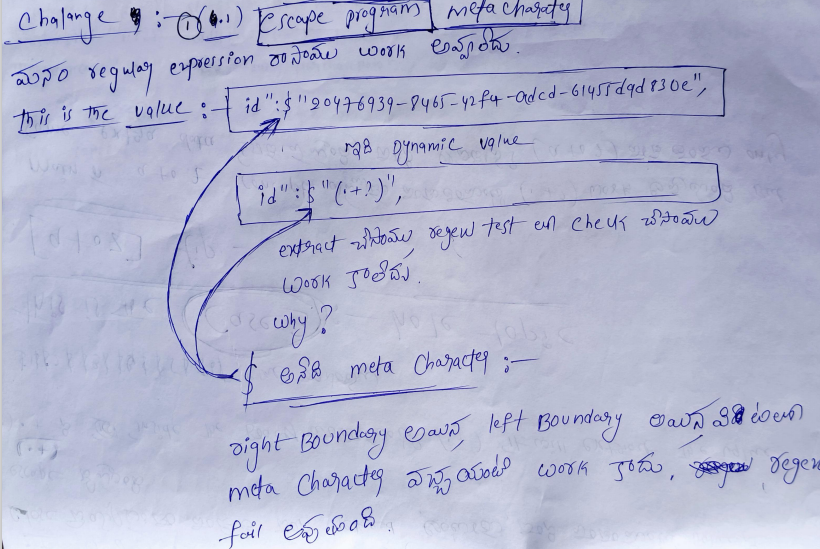 Chalange :- ① (1.1) Escape program meta Character
మనం regular expression రాసాము work అవ్వలేదు.
this is the value :- id":$"20476939-8465-42f4-adcd-61455d9d830e",
ఇది Dynamic value
id":$"(.+?)",
extract చేసాము, regex test లో check చేసాము
work కాలేదు.
why?
$ అనేది meta Character :-
right Boundary అయిన, left Boundary అయిన వీటిలో
meta Character వచ్చాయంటే work కాదు, regex
fail అవుతుంది.